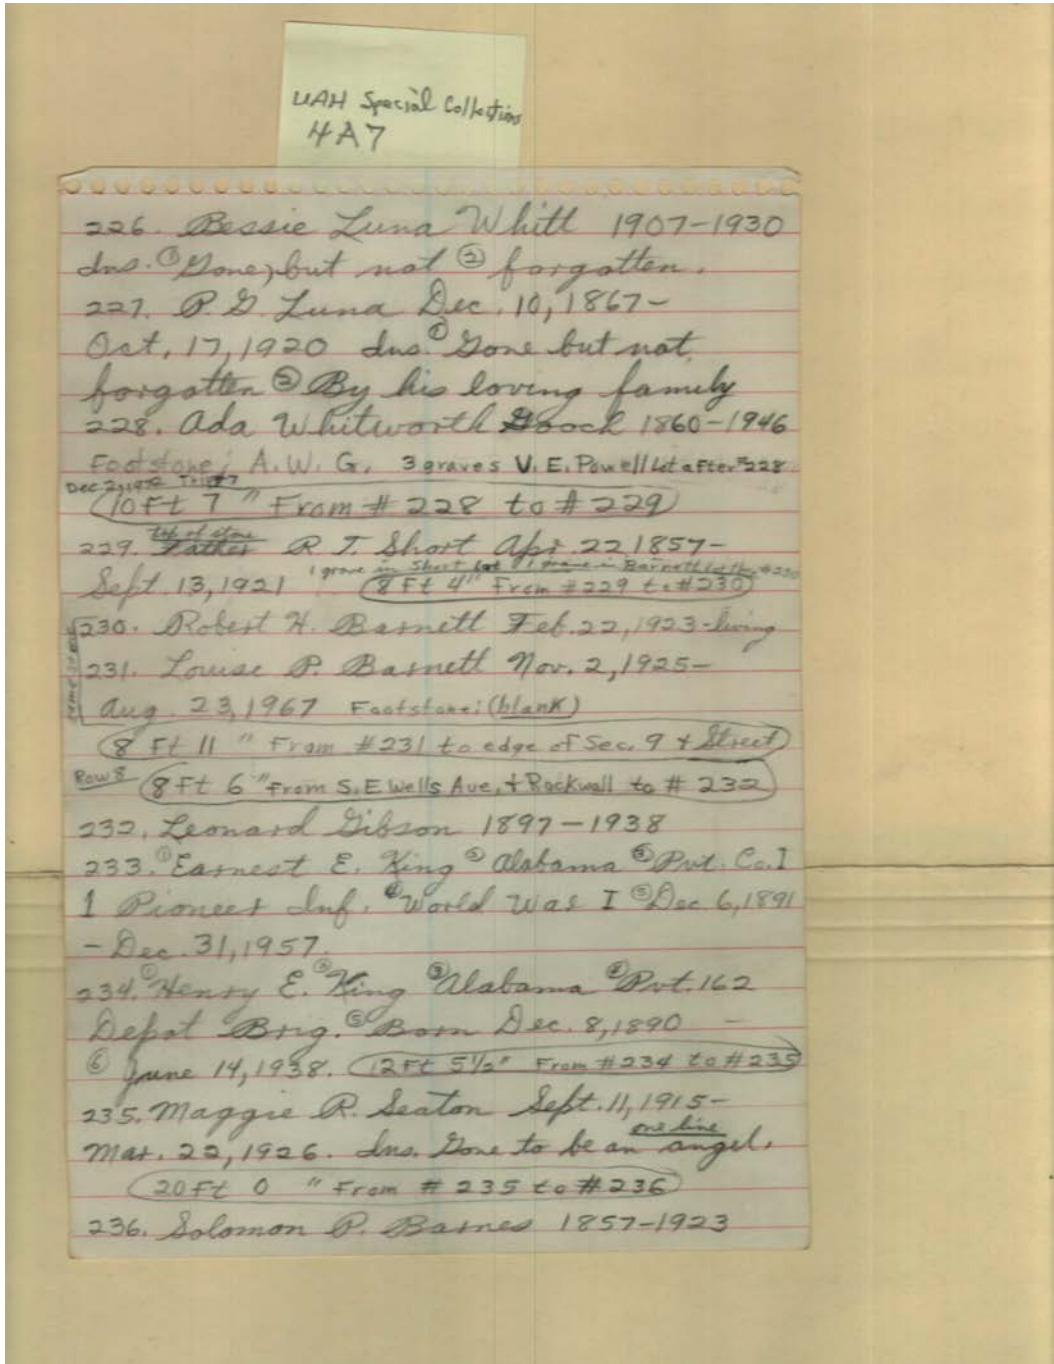 UAH Special Collections
4A7
226. Bessie Luna Whitt 1907-1930
Ins. ① Gone, but not ② forgotten.
227. P. G. Luna Dec. 10, 1867-
Oct. 17, 1920 Ins. ① Gone but not
forgotten ② By his loving family
228. Ada Whitworth Gooch 1860-1946
Footstone; A. W. G. 3 graves V. E. Powell Lot after #228
Dec. 2,
10 Ft 7 " From # 228 to # 229
top of stone
229. Father R T. Short Apr. 22 1857-
1 grave in Short Lot 1 grave in Barnett Lot #230
Sept. 13, 1921 8 Ft 4" From #229 to #230
230. Robert H. Barnett Feb. 22, 1923-living
same stone
231. Louise P. Barnett Nov. 2, 1925-
Aug. 23, 1967 Footstone; (blank)
8 Ft 11 " From #231 to edge of Sec. 9 + Street
Row 8 8 Ft 6 " From S. E Wells Ave. + Rockwall to # 232
232. Leonard Gibson 1897-1938
233. ① Earnest E. King ② Alabama ③ Pvt. Co. I
1 Pioneer Inf. ④ World War I ⑤ Dec. 6, 1891
- Dec. 31, 1957.
234. ① Henry E. ② King ③ Alabama ④ Pvt. 162
Depot Brig. ⑤ Born Dec. 8, 1890 -
⑥ June 14, 1938. 12 Ft 5½" From #234 to #235
235. Maggie R. Seaton Sept. 11, 1915-
one line
Mar. 22, 1926. Ins. Gone to be an angel.
20 Ft 0 " From # 235 to # 236
236. Solomon P. Barnes 1857-1923